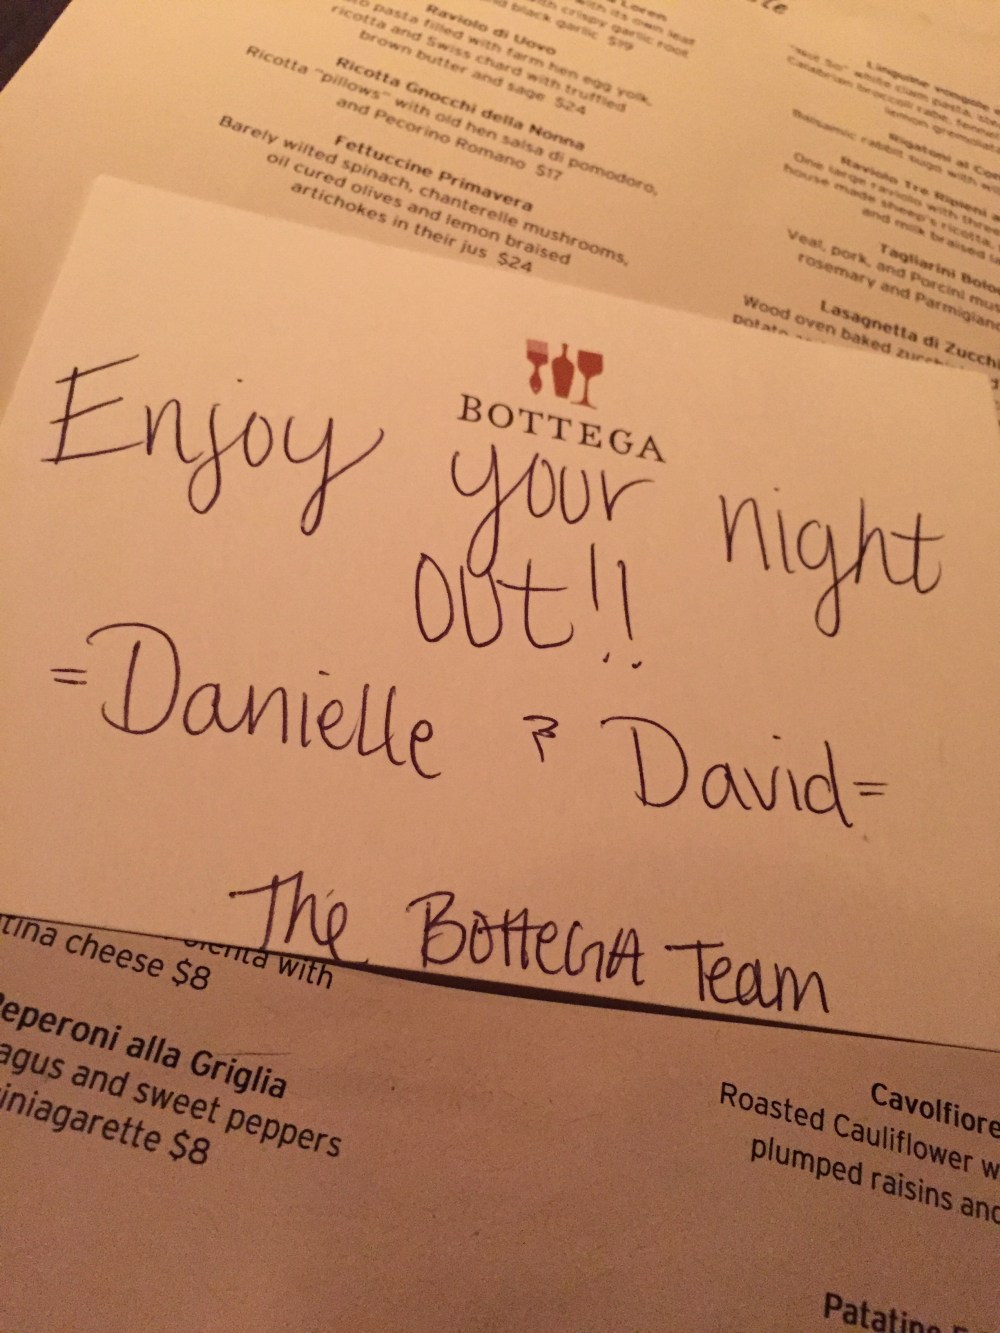 Loren
with its own leaf
with crispy garlic root
and black garlic $19
Raviolo di Uovo
pasta filled with farm hen egg yolk,
ricotta and Swiss chard with truffled
brown butter and sage $24
Ricotta Gnocchi della Nonna
Ricotta "pillows" with old hen salsa di pomodoro,
and Pecorino Romano $17
Fettuccine Primavera
Barely wilted spinach, chanterelle mushrooms,
oil cured olives and lemon braised
artichokes in their jus $24
Linguine vongole
"Not So" white clam pasta,
Calabrian broccoli rabe,
lemon
Rigatoni al
Balsamic rabbit sugo with
Raviolo Tre Ripieni
One large raviolo with three
house made sheep's ricotta,
and milk braised
Tagliarini Bolo
Veal, pork, and Porcini mus
rosemary and Parmigiano
Lasagnetta di Zucchi
Wood oven baked zucchi
potato
BOTTEGA
Enjoy your night
out!!
=Danielle & David=
The BOTTEGA Team
olenta with
tina cheese $8
Peperoni alla Griglia
agus and sweet peppers
iniagarette $8
Cavolfiore
Roasted Cauliflower w
plumped raisins and
Patatine